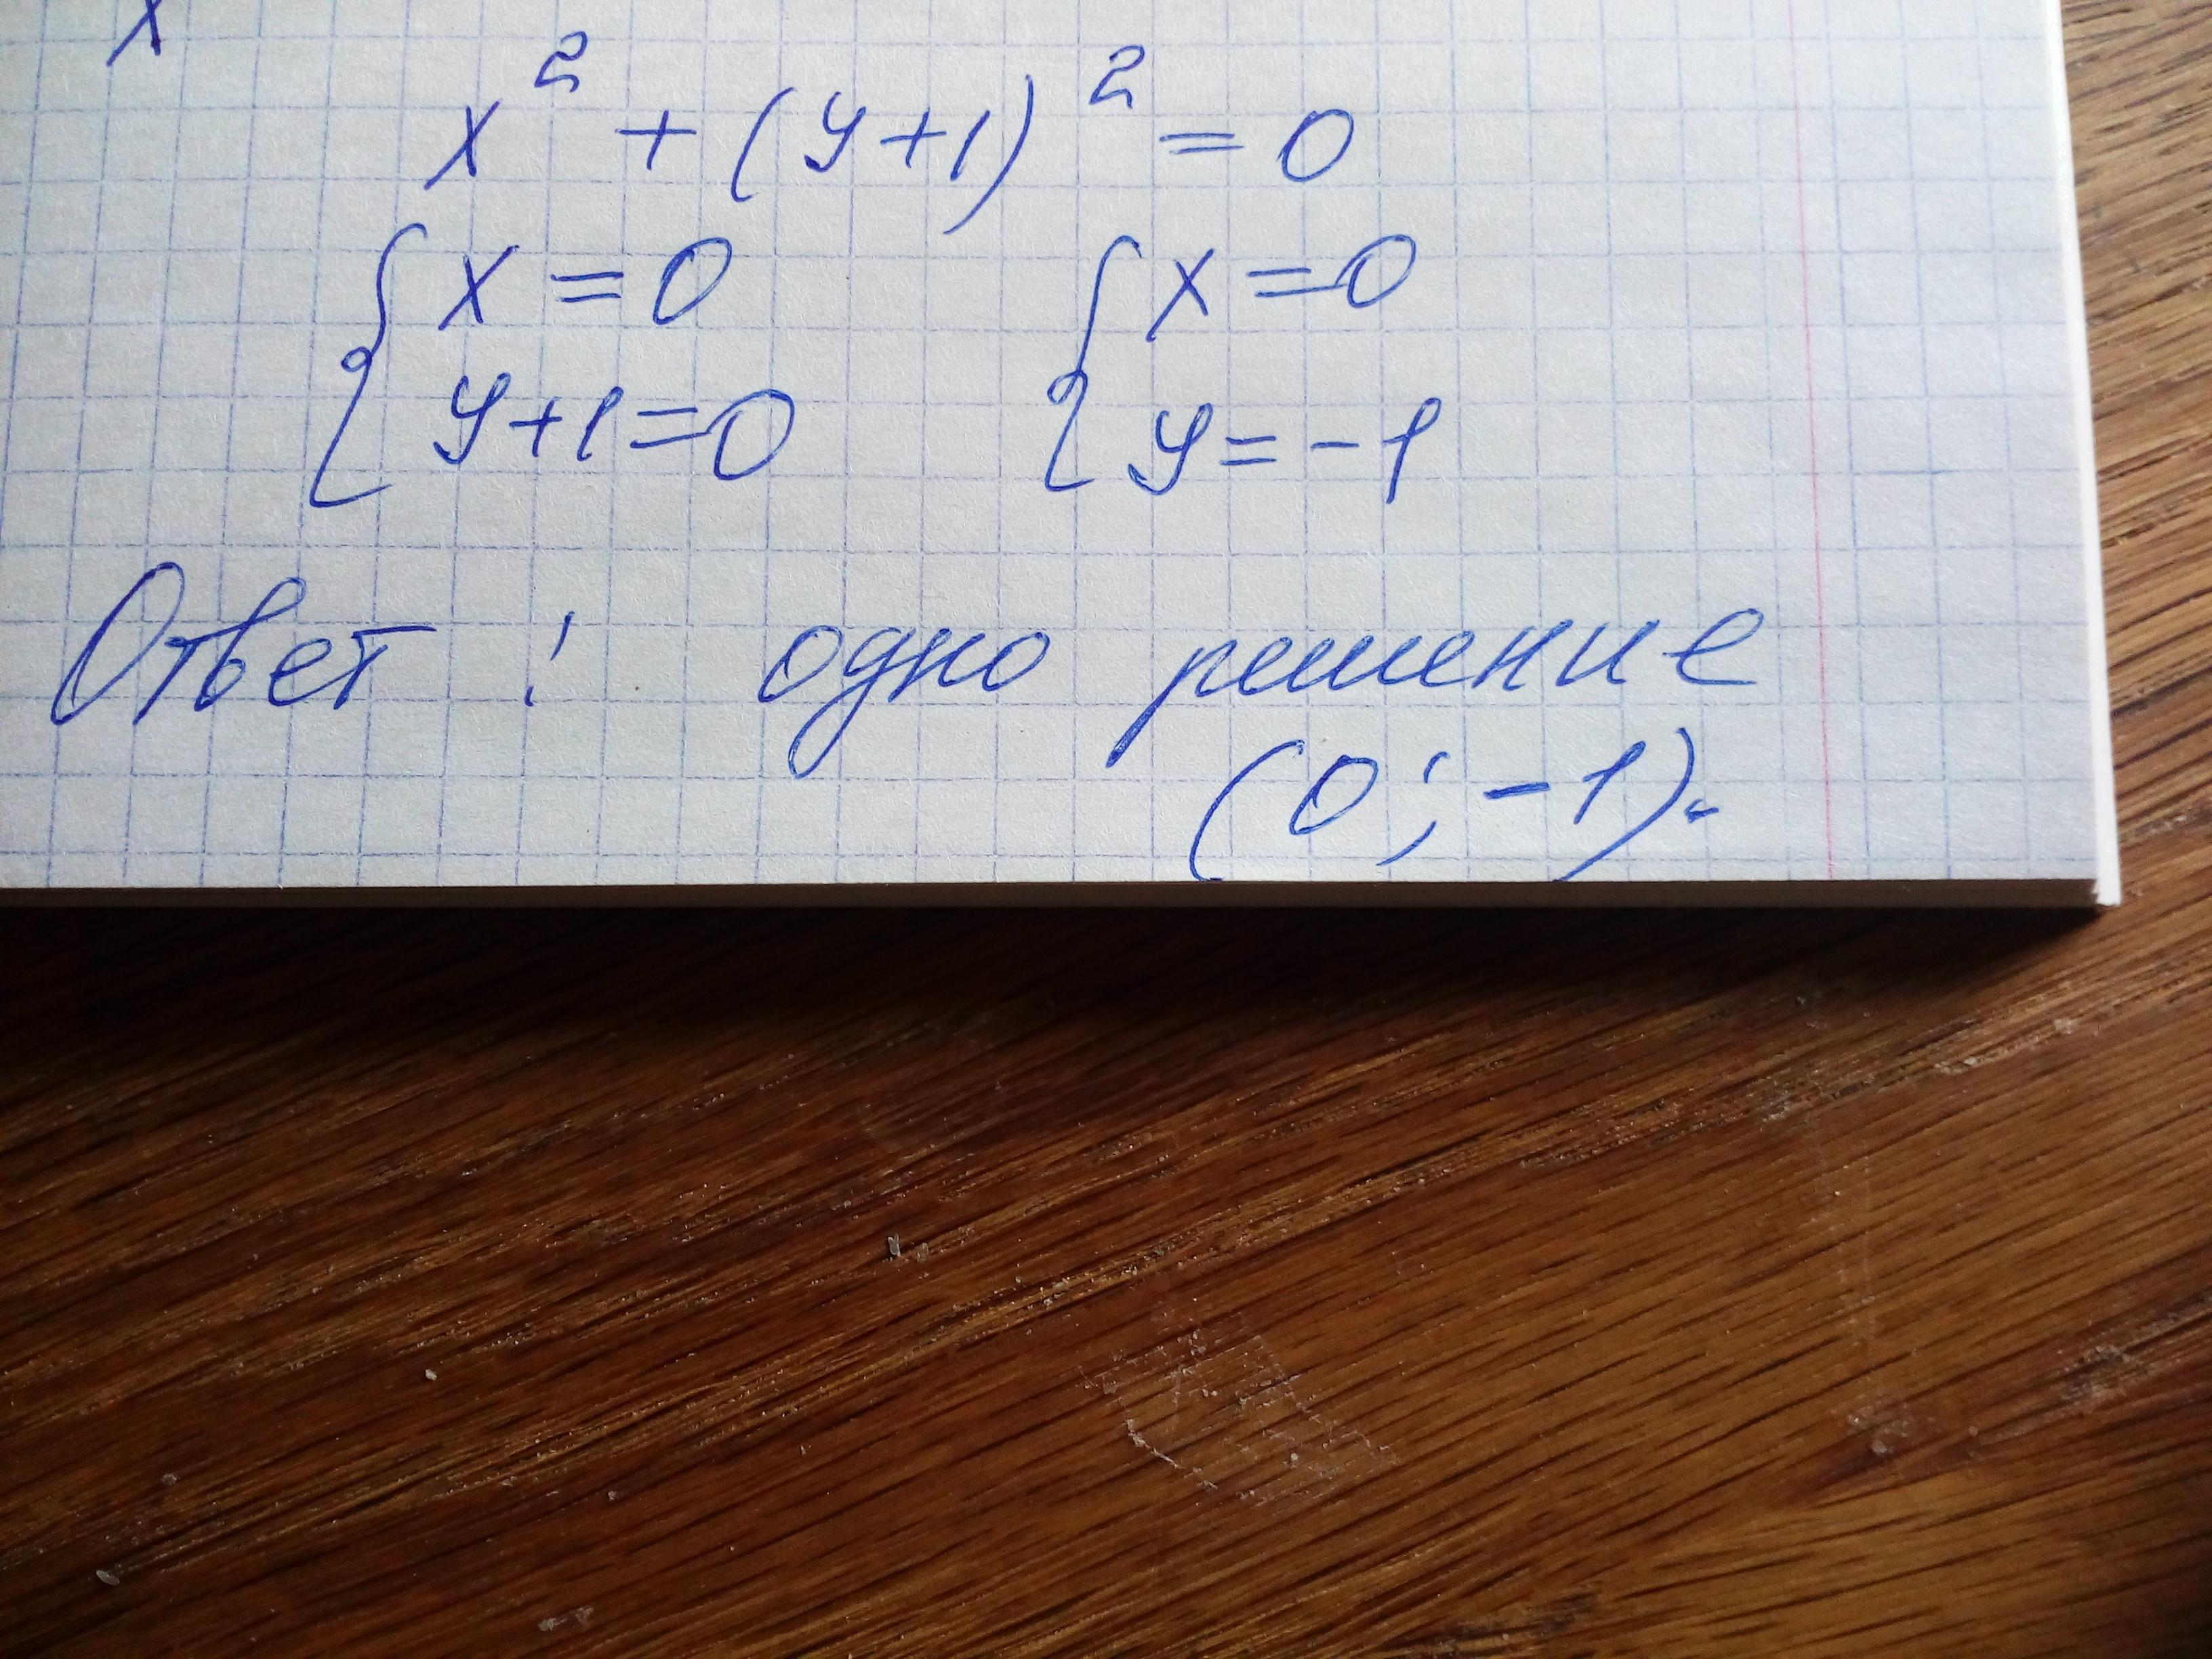 x
x² + (y+1)² = 0
{ x = 0 { x = 0
y+1=0 y = -1
Ответ: одно решение
(0; -1).